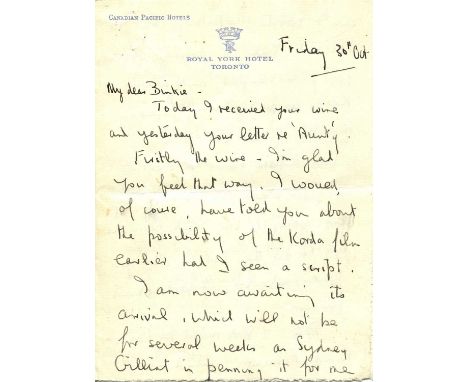 CANADIAN PACIFIC HOTELS
ROYAL YORK HOTEL
TORONTO
Friday 30th Oct
My dear Binkie -
Today I received your wire
and yesterday your letter re 'Aunty'.
Firstly the wire - I'm glad
you feel that way. I would,
of course, have told you about
the possibility of the Korda film
earlier had I seen a script.
I am now awaiting its
arrival, which will not be
for several weeks as Sydney
Gilliat is penning it for me